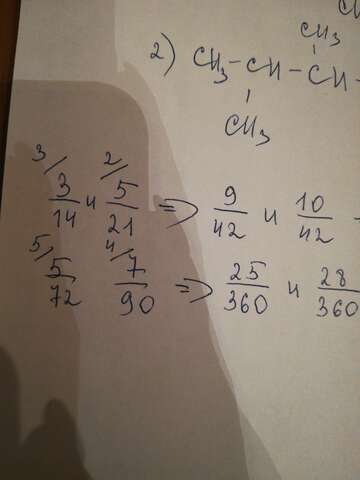 CH
CH3
2) CH3 - CH - CH -
CH3
3/ 2/
3/14 и 5/21 => 9/42 и 10/42 -
5/ 4/
5/72 7/90 => 25/360 и 28/360